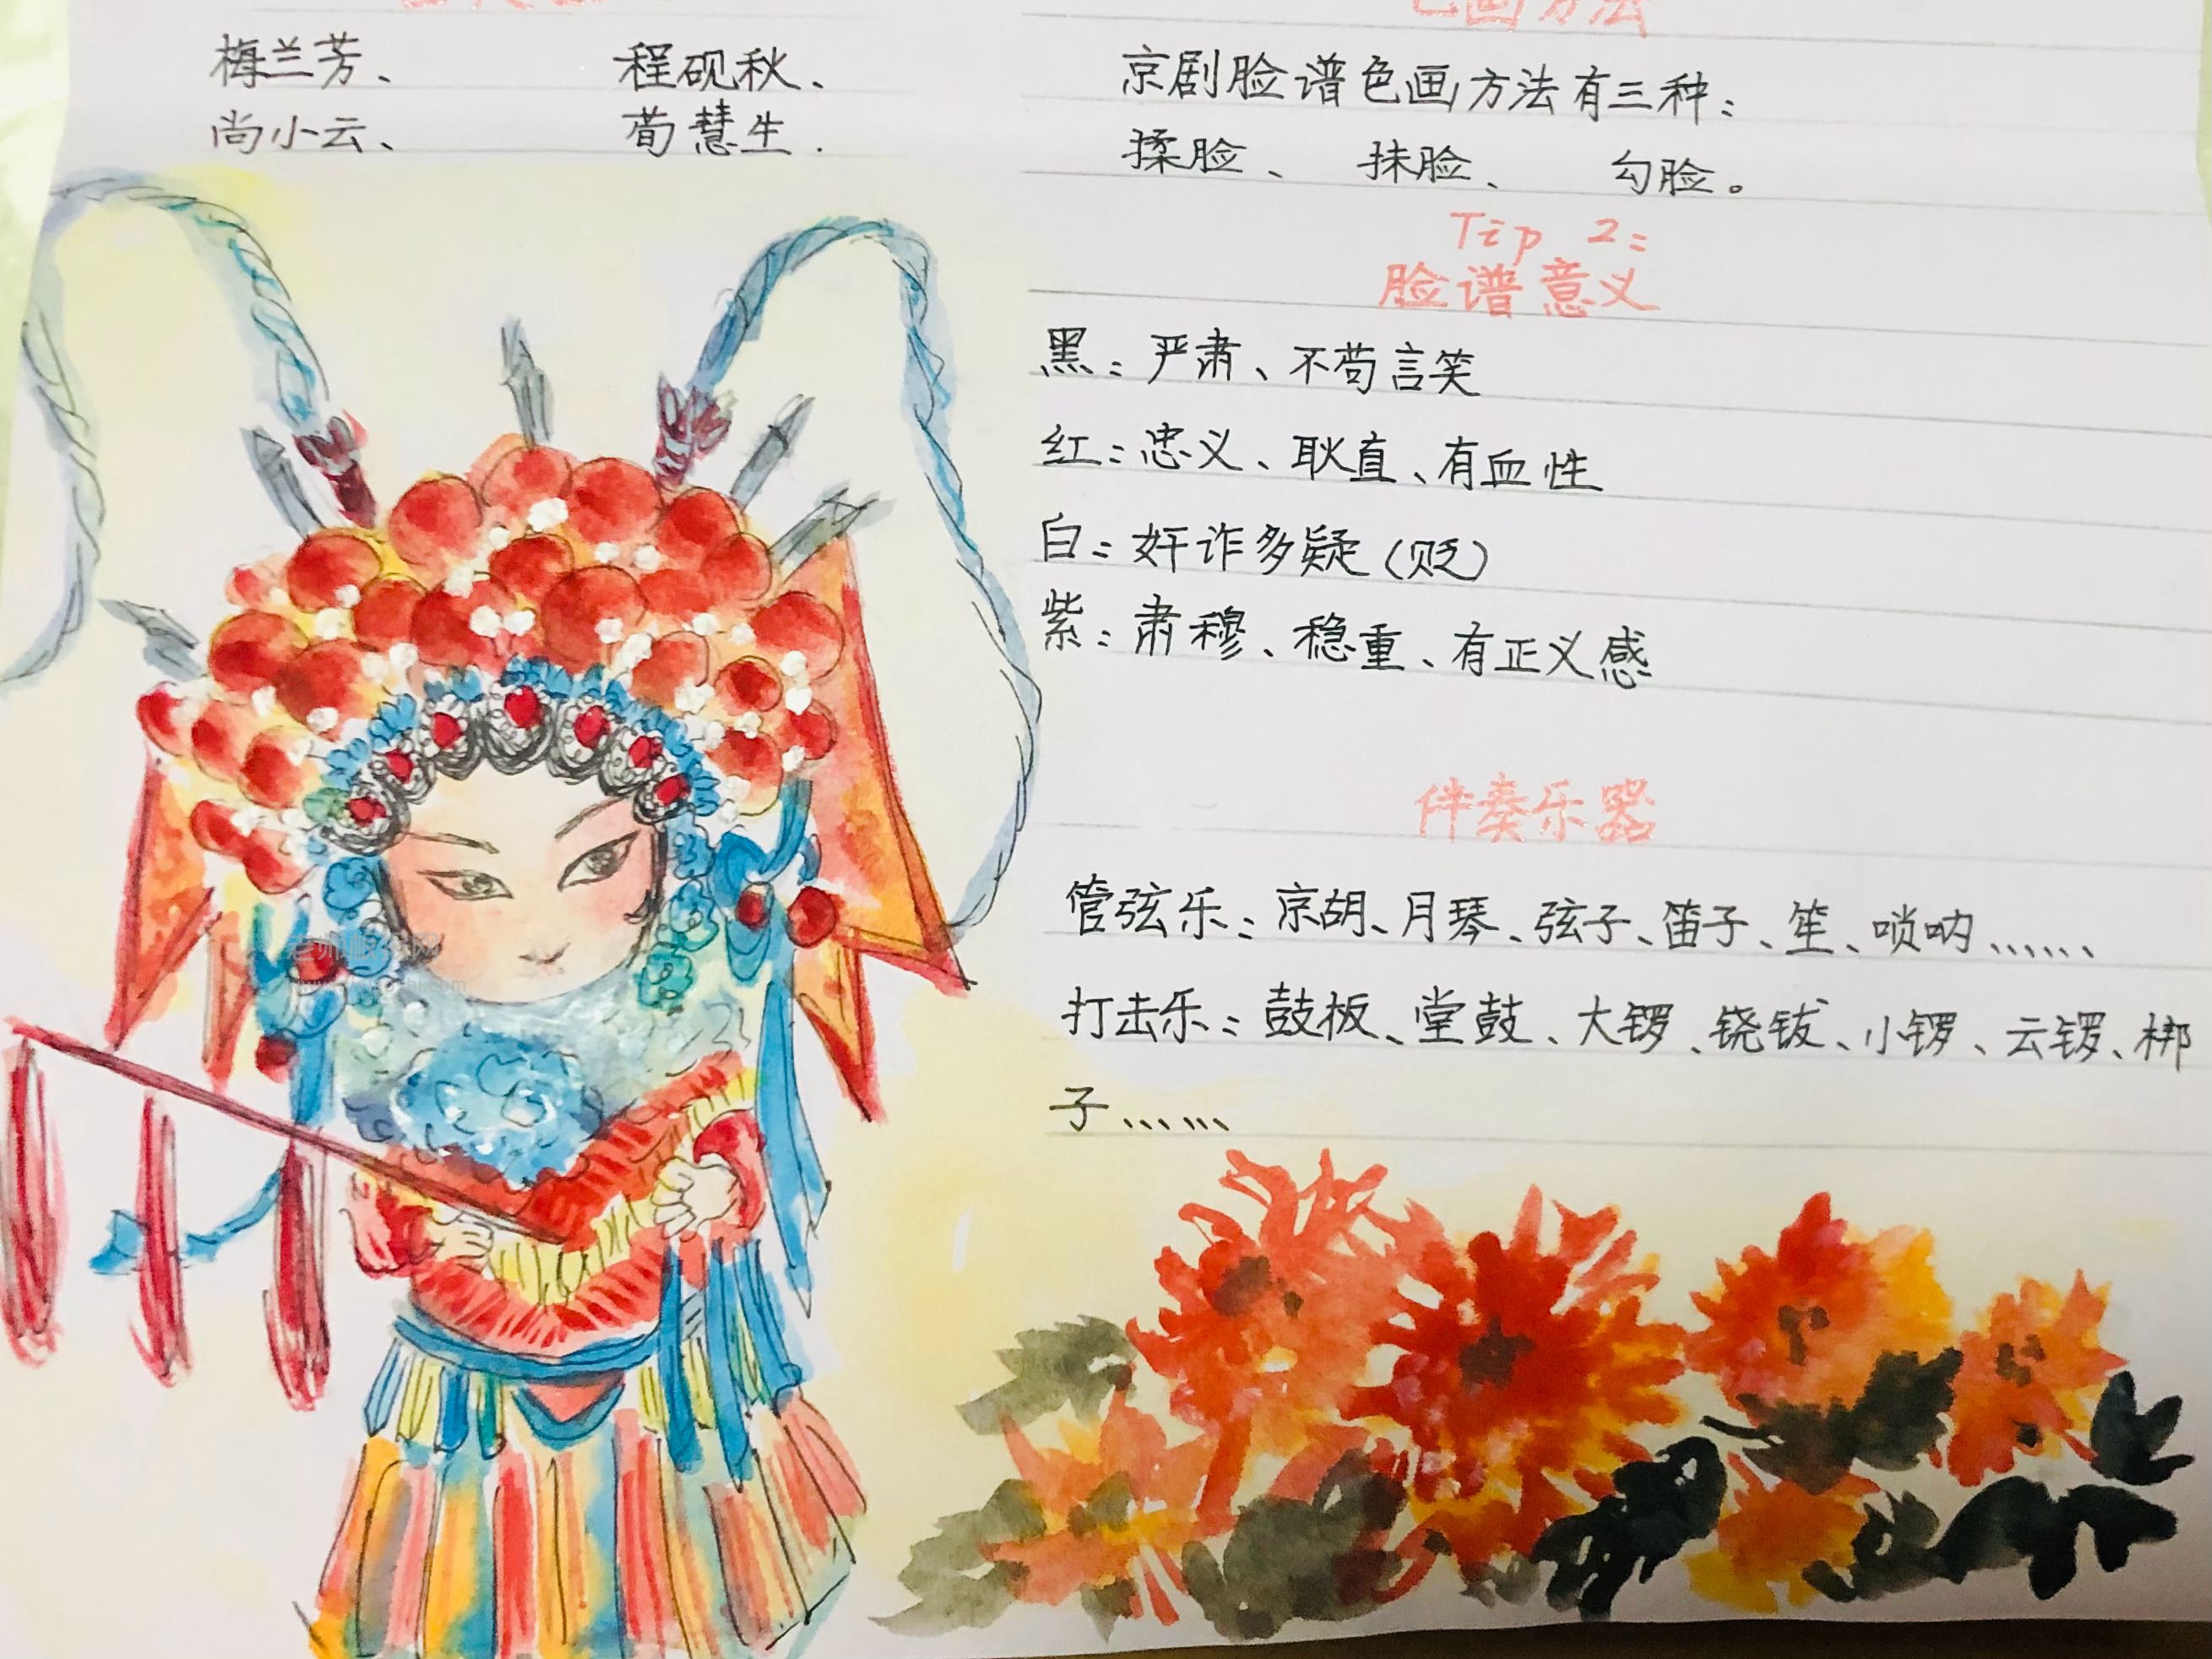 梅兰芳、 程砚秋、
尚小云、 荀慧生.
色画方法
京剧脸谱色画方法有三种：
揉脸、 抹脸、 勾脸。
Tip 2:
脸谱意义
黑：严肃、不苟言笑
红：忠义、耿直、有血性
白：奸诈多疑（贬）
紫：肃穆、稳重、有正义感
伴奏乐器
管弦乐：京胡、月琴、弦子、笛子、笙、唢呐、、、、、、
打击乐：鼓板、堂鼓、大锣、铙钹、小锣、云锣、梆
子、、、、、、